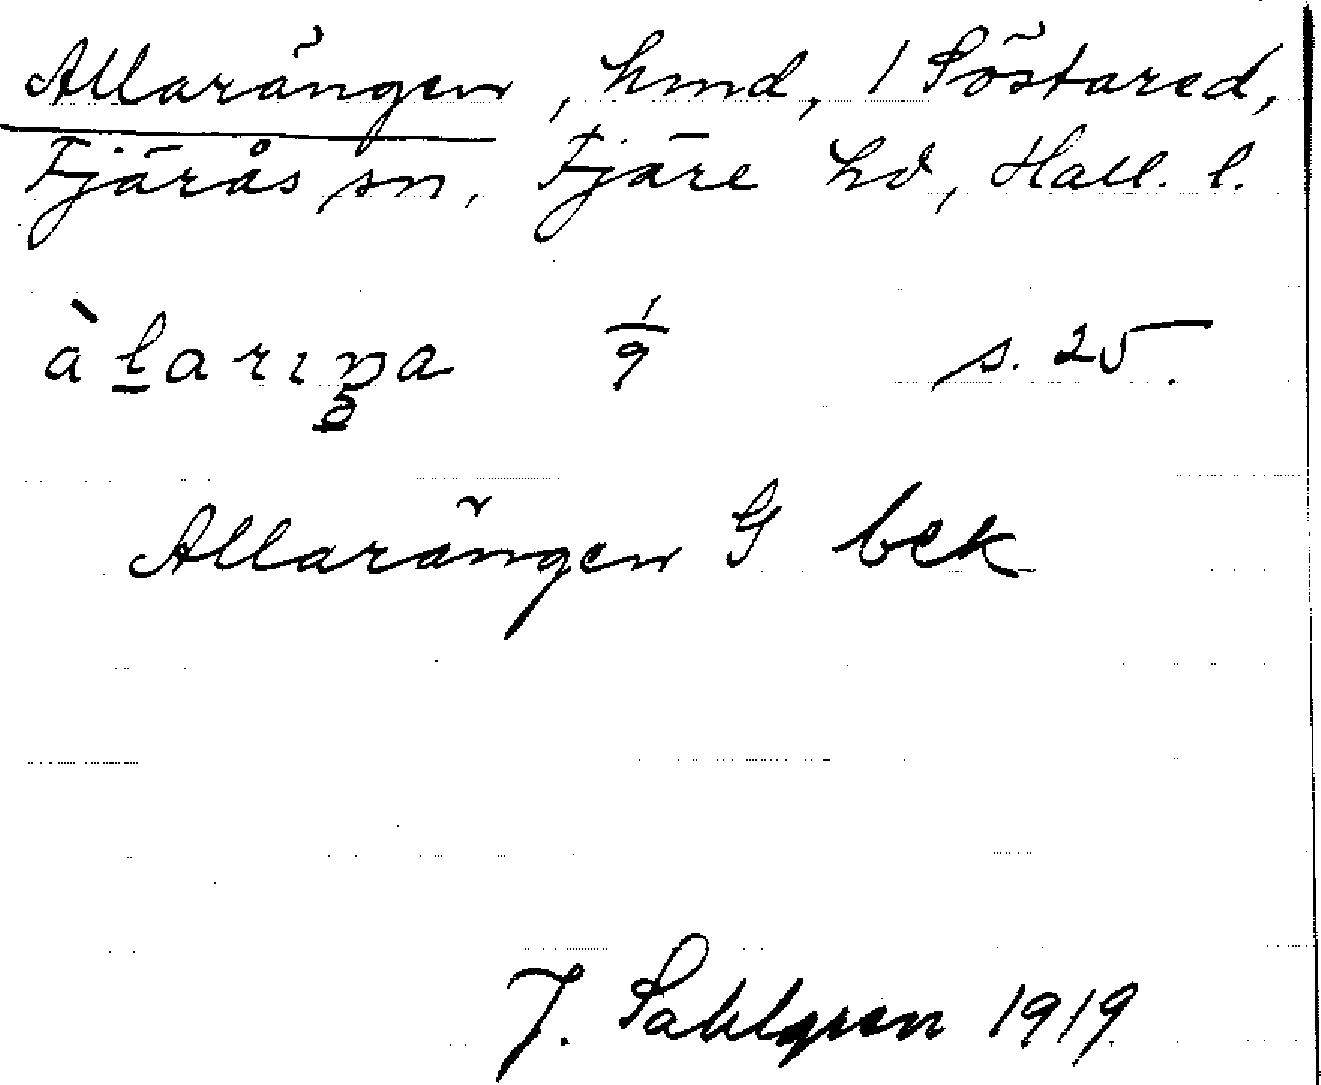 Allarängen, hmd, 1 Söstared,
Fjärås sn, Fjäre hd, Hall. l.
àlarıŋa 1/9 s. 25.
Allarängen G bek
J. Sahlgren 1919